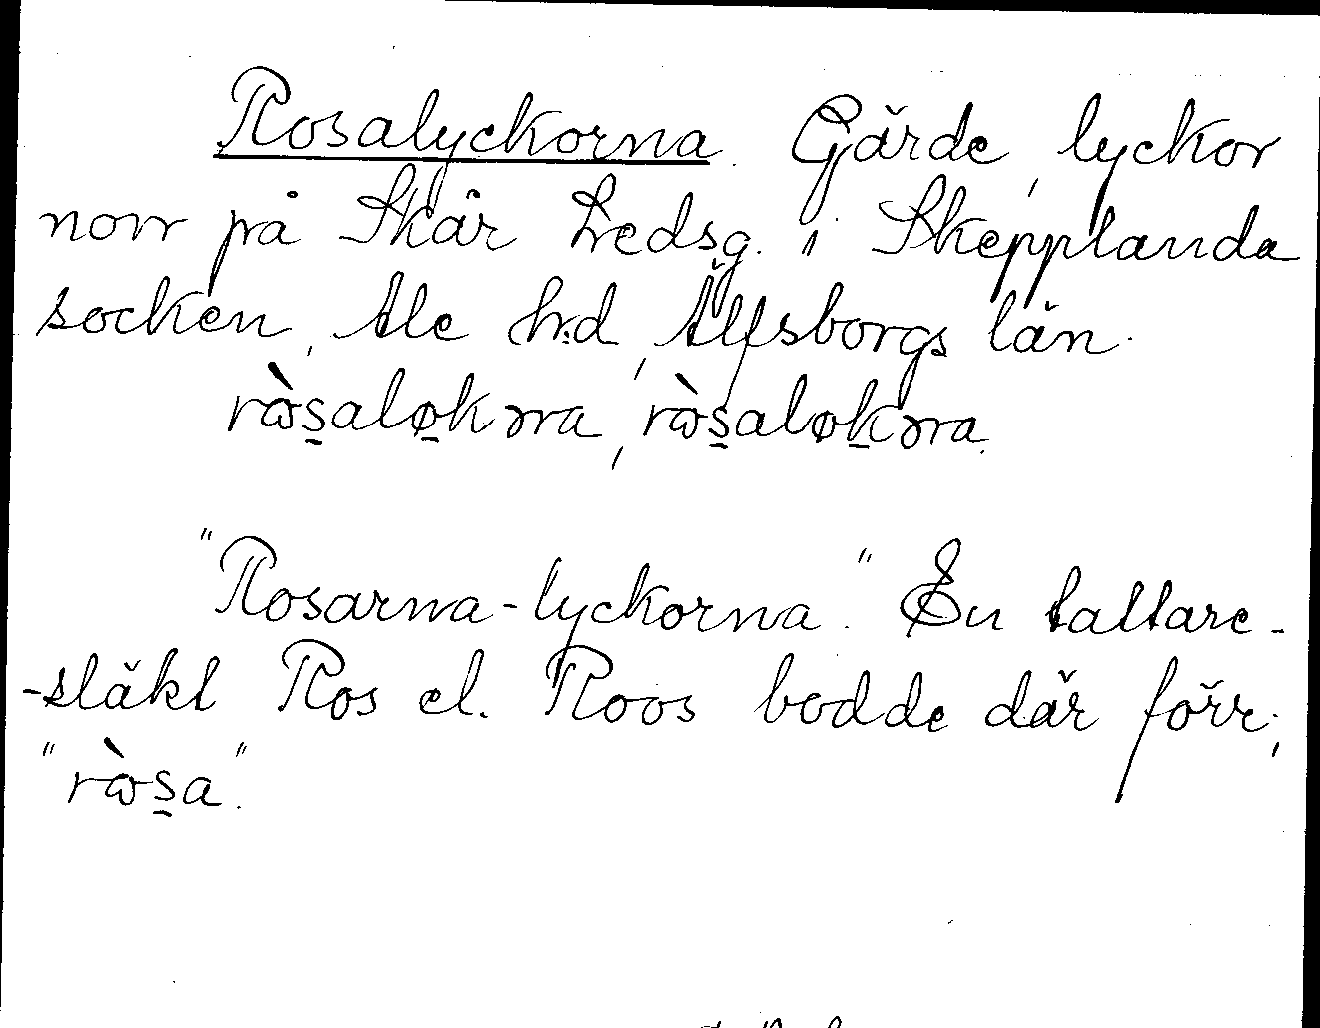 Rosalyckorna. Gärde, lyckor
norr på Skår Ledsg. i Skepplanda
socken, Ale hd, Älfsborgs län.
rɷ̀s̠alø̠kɔrra, rɷ̀s̠aløk̠ɔrra.
"Rosarna-lyckorna". En tattare-
-släkt Ros el. Roos bodde där förr;
"rɷ̀s̠a".